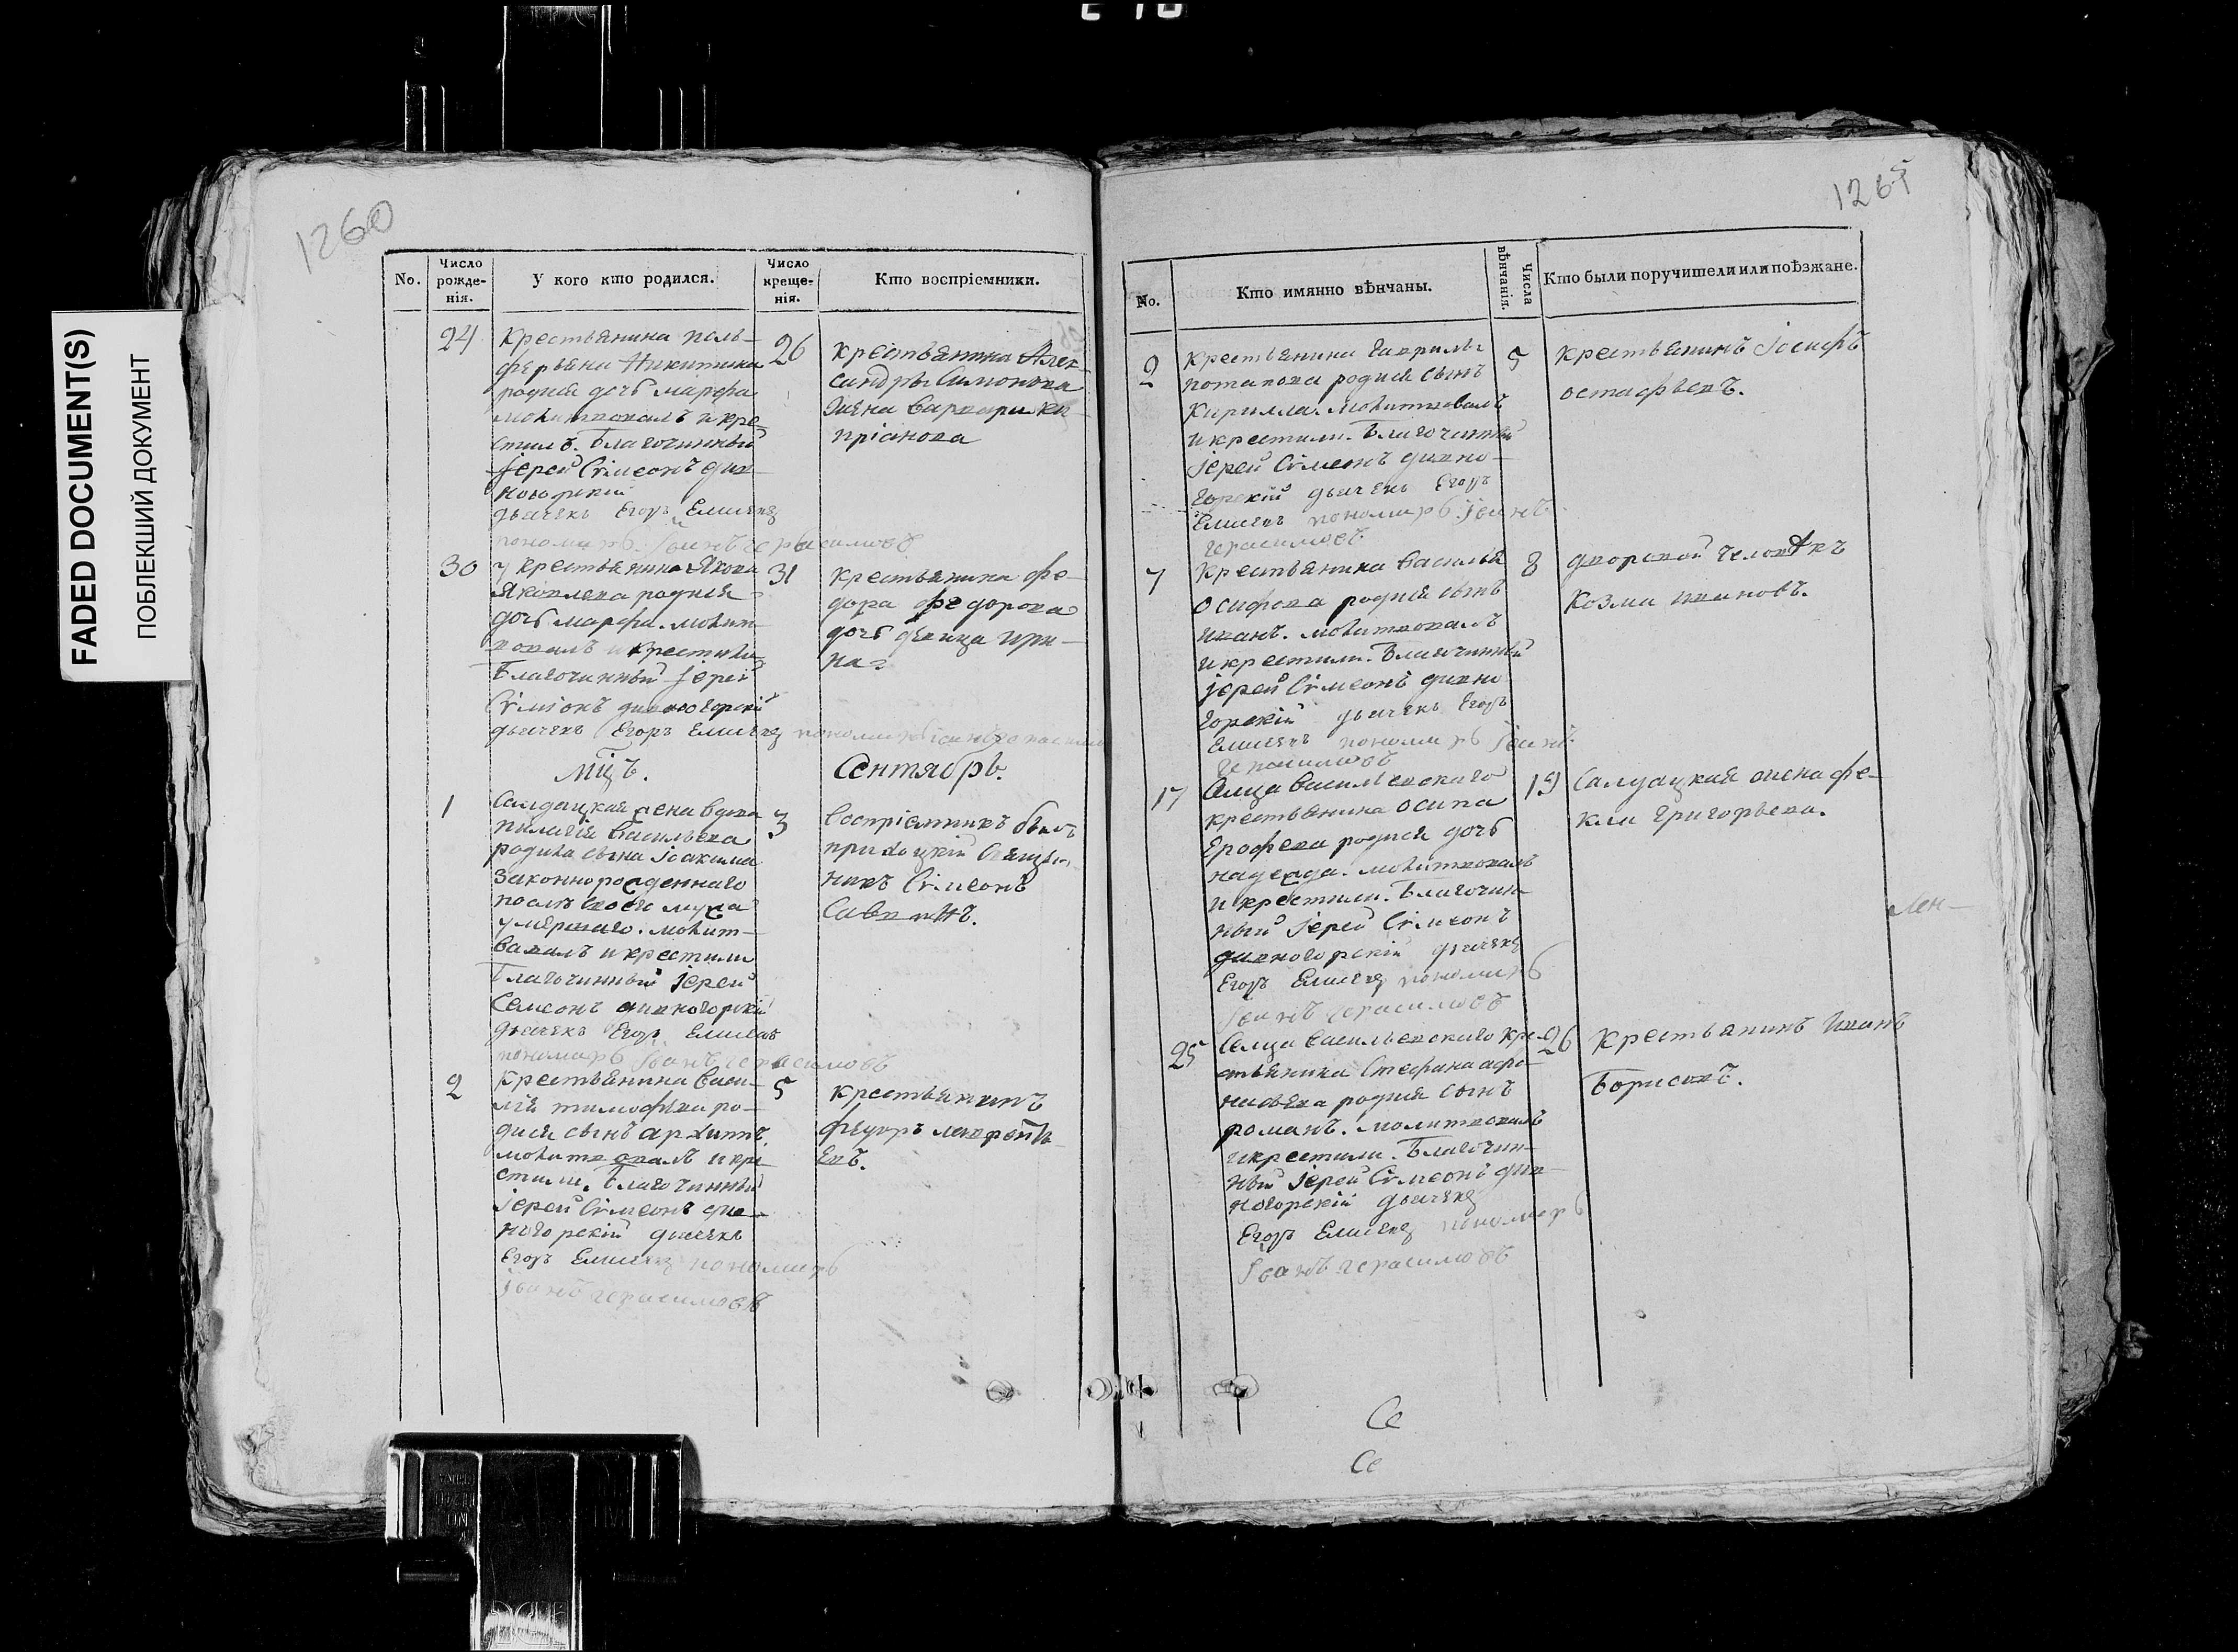 FADED DOCUMENT(S)
ПОБЛЕКШИЙ ДОКУМЕНТ
1260
No.
Число рожде-нія.
У кого кто родился.
Число креще-нія.
Кто воспріемники.
24
Крестьянина
ферьяна Никитина
родися дочь марфа
молитвовалъ и кре
стилъ. Благочинный
Іерей Сѵмеонъ див
ногорскій
дьячекъ Егоръ Елисеевъ
пономарь Іванъ герасимовъ
26
Крестьянина Алек-
сандры Симонова
жена Варвара Ки
пріанова
30
у крестьянина Якова
Яковлева родися
дочь марфа. молит-
вовалъ и крестили
Благочинный Іерей
Сѵмеонъ дивногорскій
дьячекъ Егоръ Елисеевъ пономарь Іванъ герасимовъ
31
Крестьянина фе-
дора федорова
дочь девица ири-
на
мцъ.
Сентябрь.
1
Салдацкая жена вдова
пилагія Васильева
родила сына Іоакима
законнорожденнаго
послѣ своего мужа
умершаго. молит-
вавалъ и крестили
Благочинный Іерей
Семеонъ дивногорскій
дьячекъ Егоръ Елисеевъ
пономарь Іванъ герасимовъ
3
Воспріемникъ былъ
приходскій Священ-
никъ Сѵмеонъ
Савинъ.
2
Крестьянина Васи-
лія тимофеева ро-
дися сынъ архипъ.
молитвовалъ и кре-
стили. Благочинный
Іерей Сѵмеонъ див-
ногорскій дьячекъ
Егоръ Елисеевъ пономарь
Іванъ герасимовъ
5
Крестьянинъ
лаврентьевъ
1265
No.
Кто имянно вѣнчаны.
Числа вѣнчанія.
Кто были поручители или поѣзжане.
2
Крестьянина Гаврилы
потапова родися сынъ
Кирилла. молитвовалъ
и крестили. Благочинный
Іерей Сѵмеонъ дивно-
горскій дьячекъ Егоръ
Елисеевъ пономарь Іванъ
герасимовъ
5
Крестьянинъ Іосифъ
остафьевъ.
7
Крестьянина Василья
осифова родися сынъ
иванъ. молитвовалъ
и крестили. Благочинный
Іерей Сѵмеонъ дивно
горскій дьячекъ Егоръ
Елисеевъ пономарь Іванъ
герасимовъ
8
дворовой человѣкъ
Козма ивановъ.
17
Сельца Васильевскаго
крестьянина осипа
Ерофеева родися дочь
надежда. молитвовалъ
и крестили. Благочин-
ный Іерей Сѵмеонъ
дивногорскій дьячекъ
Егоръ Елисеевъ пономарь
Іванъ герасимовъ
19
Салдацкая жена фе-
кла Григорьева.
25
Сельца Васильевскаго кре-
стьянина Стефана афо-
насьева родися сынъ
романъ. молитвовалъ
и крестили. Благочин-
ный Іерей Сѵмеонъ див-
ногорскій дьячекъ
Егоръ Елисеевъ пономарь
Іванъ герасимовъ
26
Крестьянинъ Иванъ
Борисовъ.
Се
Се